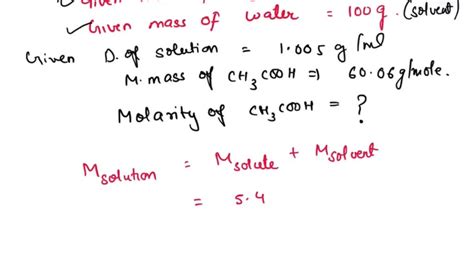 Given mass of water = 100 g. (solvent)
Given D. of solution = 1.005 g/ml
M. mass of CH3COOH = 60.06 g/mole.
Molarity of CH3COOH = ?
Msolution = Msolute + Msolvent
= 5.4